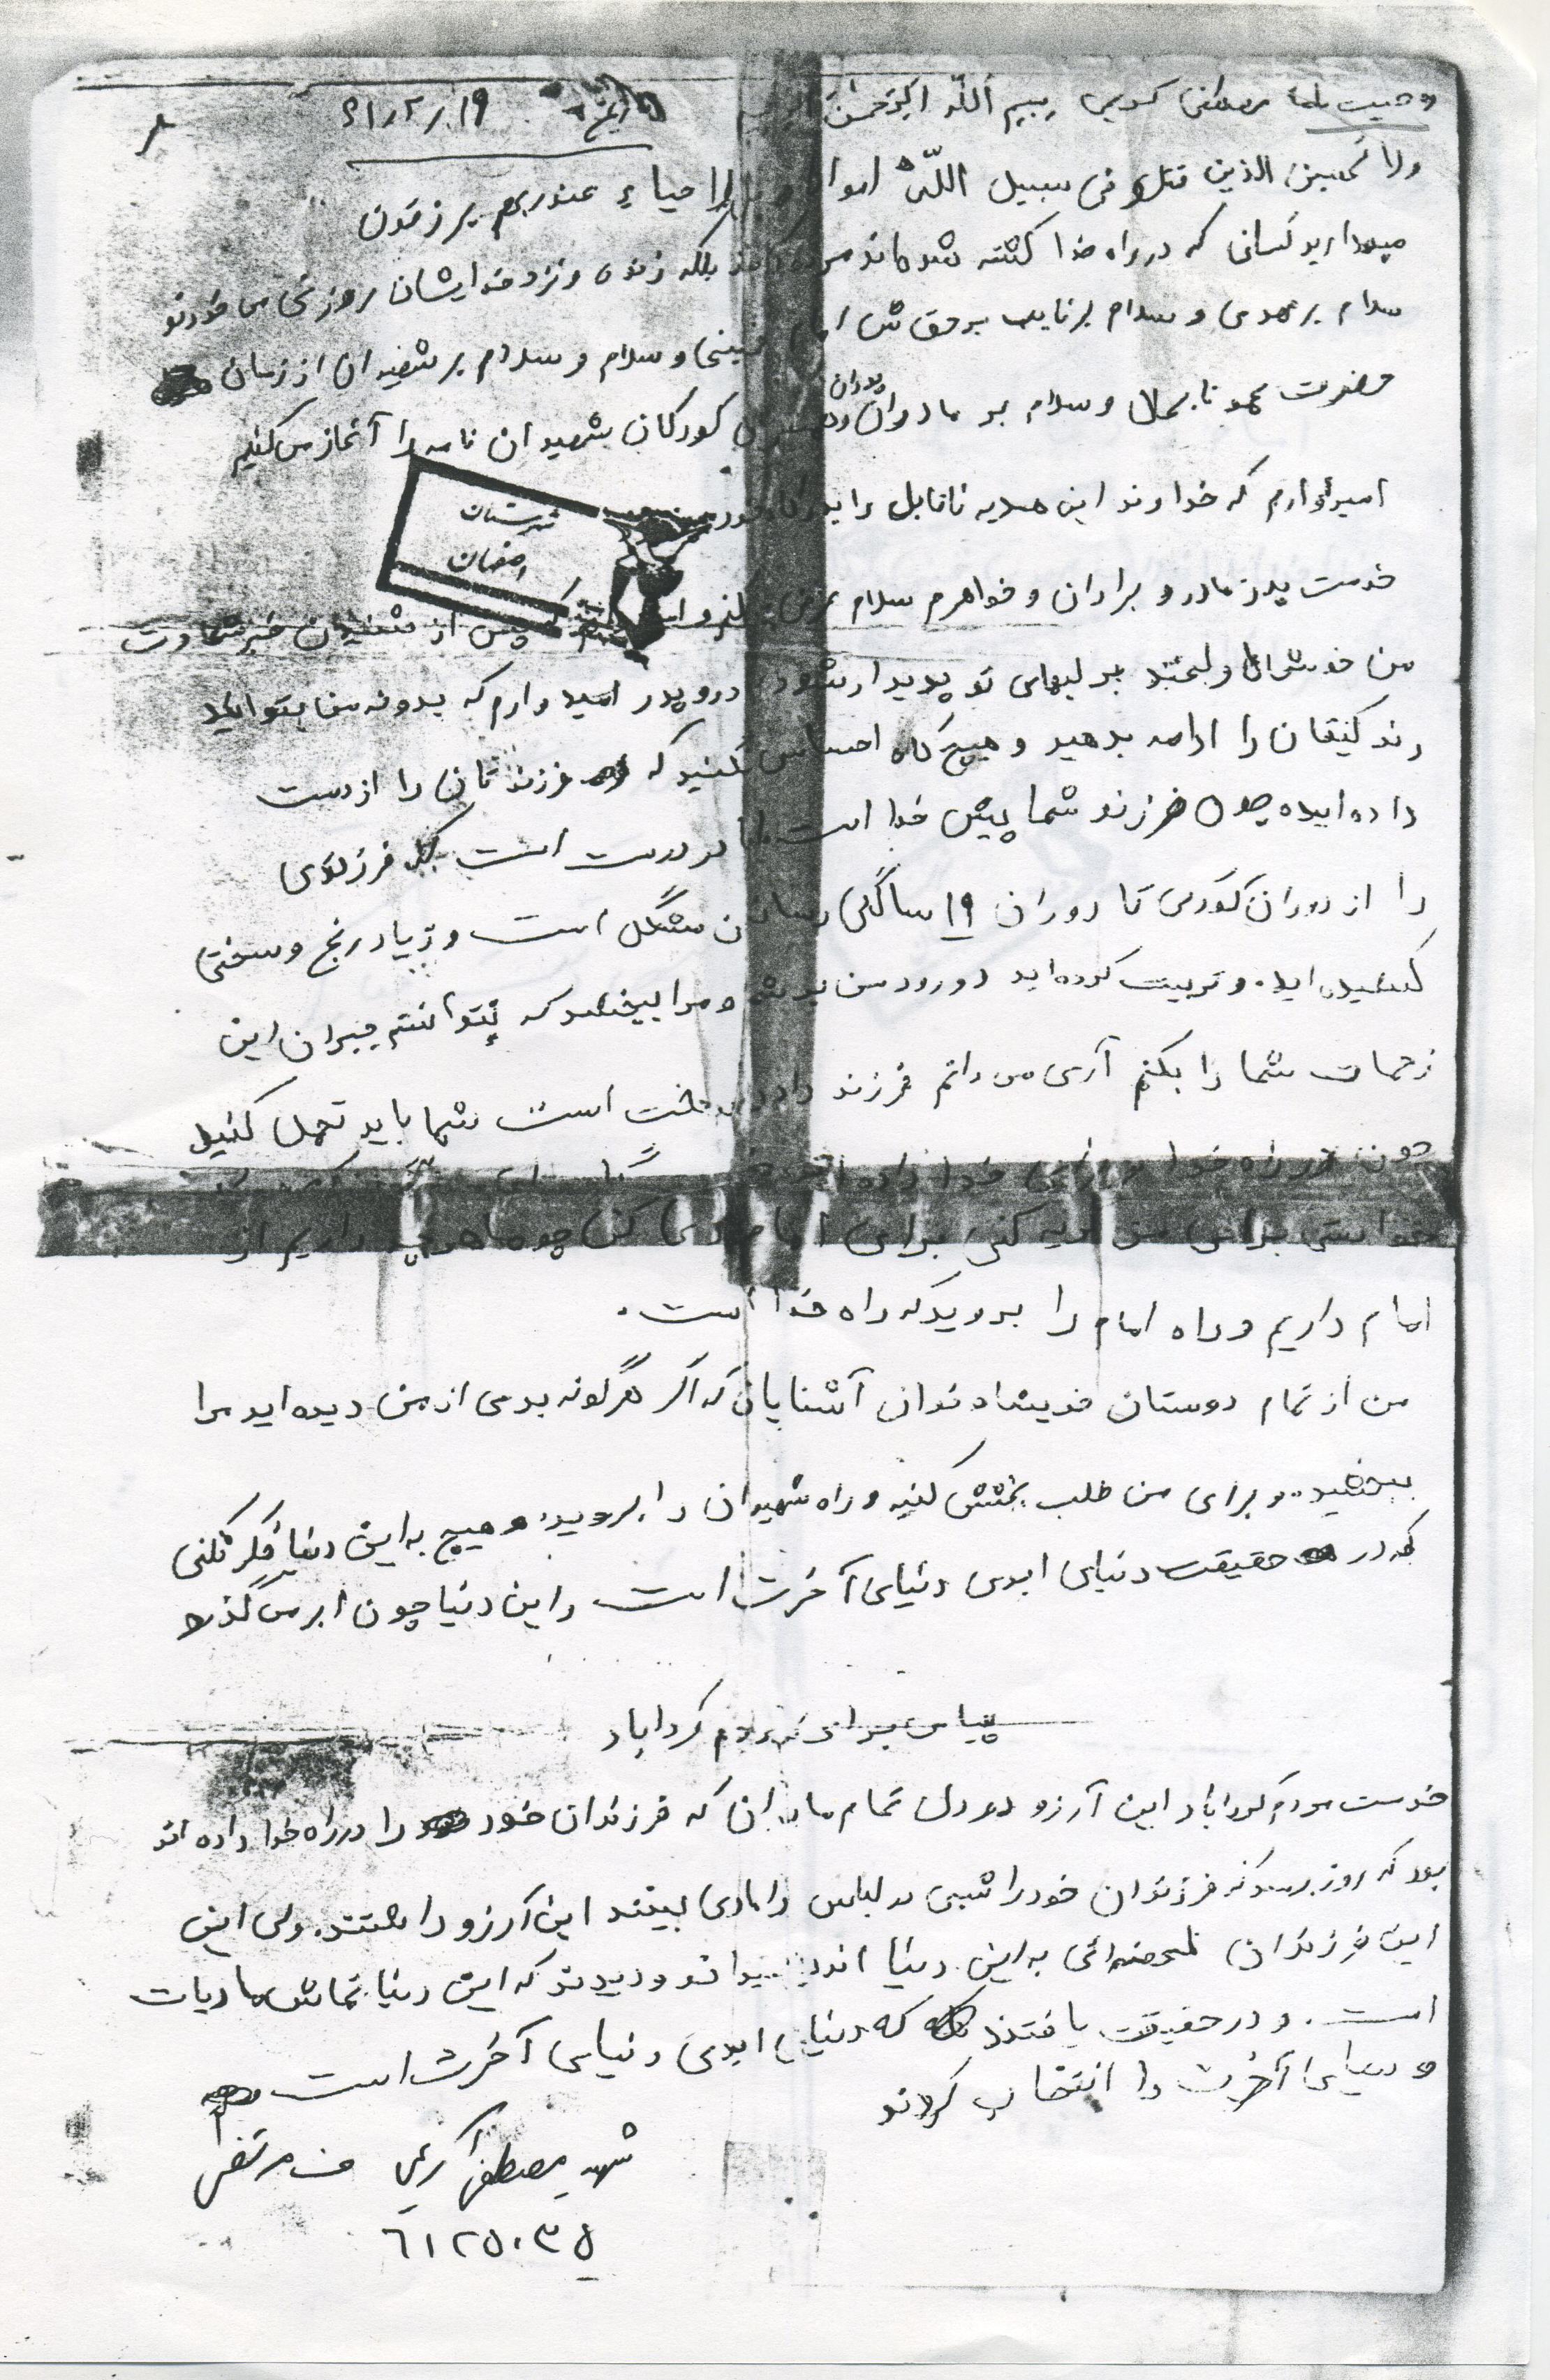 وصیت نامه مصطفی کریمی بسم الله الرحمن تاریخ ۱۹
ولا تحسبن الذین قتلو فی سبیل اللّه امواتا بل احیاء عندربهم یرزقون
کسانی که در راه خدا کشته شده‌اند مرده بلکه زنده و نزد خدایشان روزی می خورند
سلام بر مهدی و سلام بر نایب بر حق ش امام خمینی و سلام و سلام بر شهیدان از زمان
حضرت محمد تا بحال و سلام بر مادران پدران و کودکان شهیدان نامه را آغاز می کنیم
امیدوارم که خداوند این هدیه ناقابل را
شهرستان
اصفهان
خدمت پدر مادر و برادران و خواهرم سلام عرض پس از شنیدن خبر شهادت
من خوشحال و لبخند بر لبهای تو پدیدار شود در و پدر امید دارم که بدونه من بتوانید
زندگیتان را ادامه بدهید و هیچ گاه احساس نکنید که فرزندتان را از دست
داده ایده چون فرزند شما پیش خدا است درست است که فرزندی
را از دوران کودکی تا دوران ۱۹ سالگی رساندن مشگل است و زیاد رنج و سختی
کشیده اید. و تربیت کرده اید درود من بر شما و مرا ببخشد که نتوانستم جبران این
زحمات شما را بکنم آری می دانم فرزند دادن سخت است شما باید تحمل کنید
چون در راه خدا برای خدا داده اید
خواستی برای من گریه کنی برای امام دعا کن چون ما هرچه داریم از
امام داریم و راه امام را بروید که راه خدا است.
من از تمام دوستان خویشاوندان آشنایان که اگر هرگونه بدی از من دیده اید مرا
ببخشید.. و برای من طلب بخشش کنید و راه شهیدان را بروید. و هیچ به این دنیا فکر نکنی
که در حقیقت دنیای ابدی دنیای آخرت است و این دنیا چون ابر می گذرد
پیامی برای مردم کردآباد
خدمت مردم کردآباد این آرزو در دل تمام مادران که فرزندان خود را در راه خدا داده اند
بود که روز برسد که فرزندان خود را شبی در لباس دامادی ببینند این آرزو داشتند. ولی این
این فرزندان لحظه‌ائی به این دنیا اندیشیدند و دیدند که این دنیا تماش مادیات
است. و در حقیقت یافتند که دنیای ابدی دنیای آخرت است
و دنیای آخرت را انتخاب کردند
شهید مصطفی کریمی ف مرتضی
۶۱۲۵۰۳۵